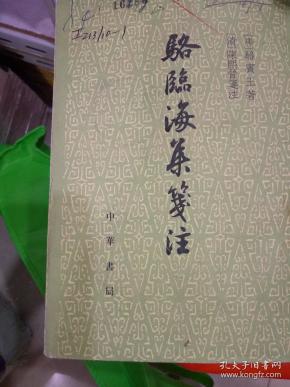 I213/10-1
唐 駱賓王著
清 陳熙晋箋注
駱臨海集箋注
中華書局
孔夫子旧书网